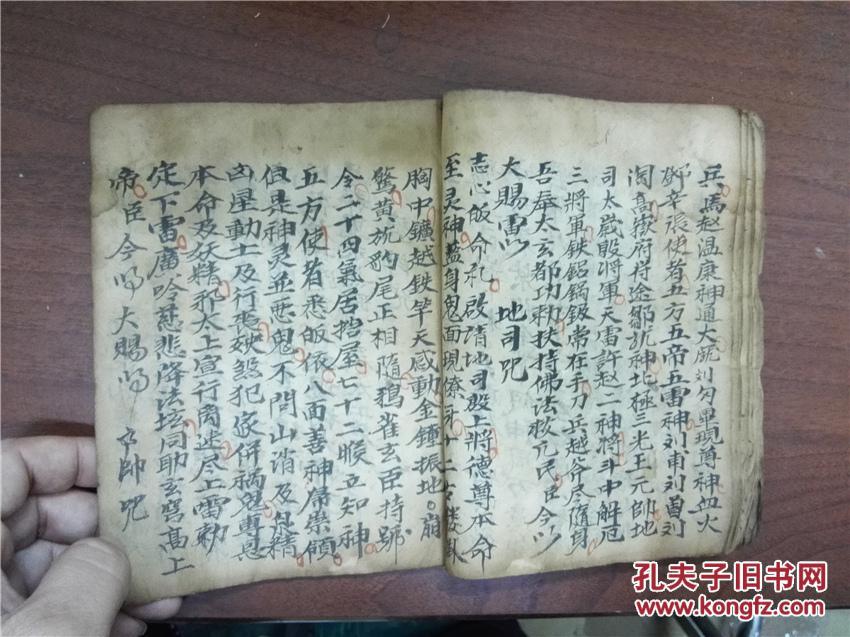 兵馬赵温康神通大㡳刘勾畢現尊神血火
鄧辛張使者五方五帝五雷神刘甫刘曾刘
陶高嶽府持途鄒訖神北極三光王元帥地
司太歲殷将軍天雷許赵二神将斗中解厄
三将軍鉄鋁鍋鈸常在手刀兵越斧尽隨身
吾奉太玄都功勅扶持佛法救兆民臣今以
大賜雷以 地司咒
志心皈命礼啟請地司殷上将德尊本命
至灵神藍身鬼面現獠牙十二
胸中鑛越鉄竿天感動金鍾振地崩
鷔黄旗豹尾正相隨鴉雀玄臣持號
令二十四氣居抬屋七十二候立知神
五方使者悉皈依八面善神席崇傾
但是神灵並悪鬼不問山消及其精
凶星動土及行喪殃殺犯家併禍鬼專忌
本命及妖精祚太上宣行商迷尽上雷勅
定下雷廣吟慈悲降法坛同助玄穹髙上
帝臣今以大賜以 辛帥咒
孔夫子旧书网
www.kongfz.com